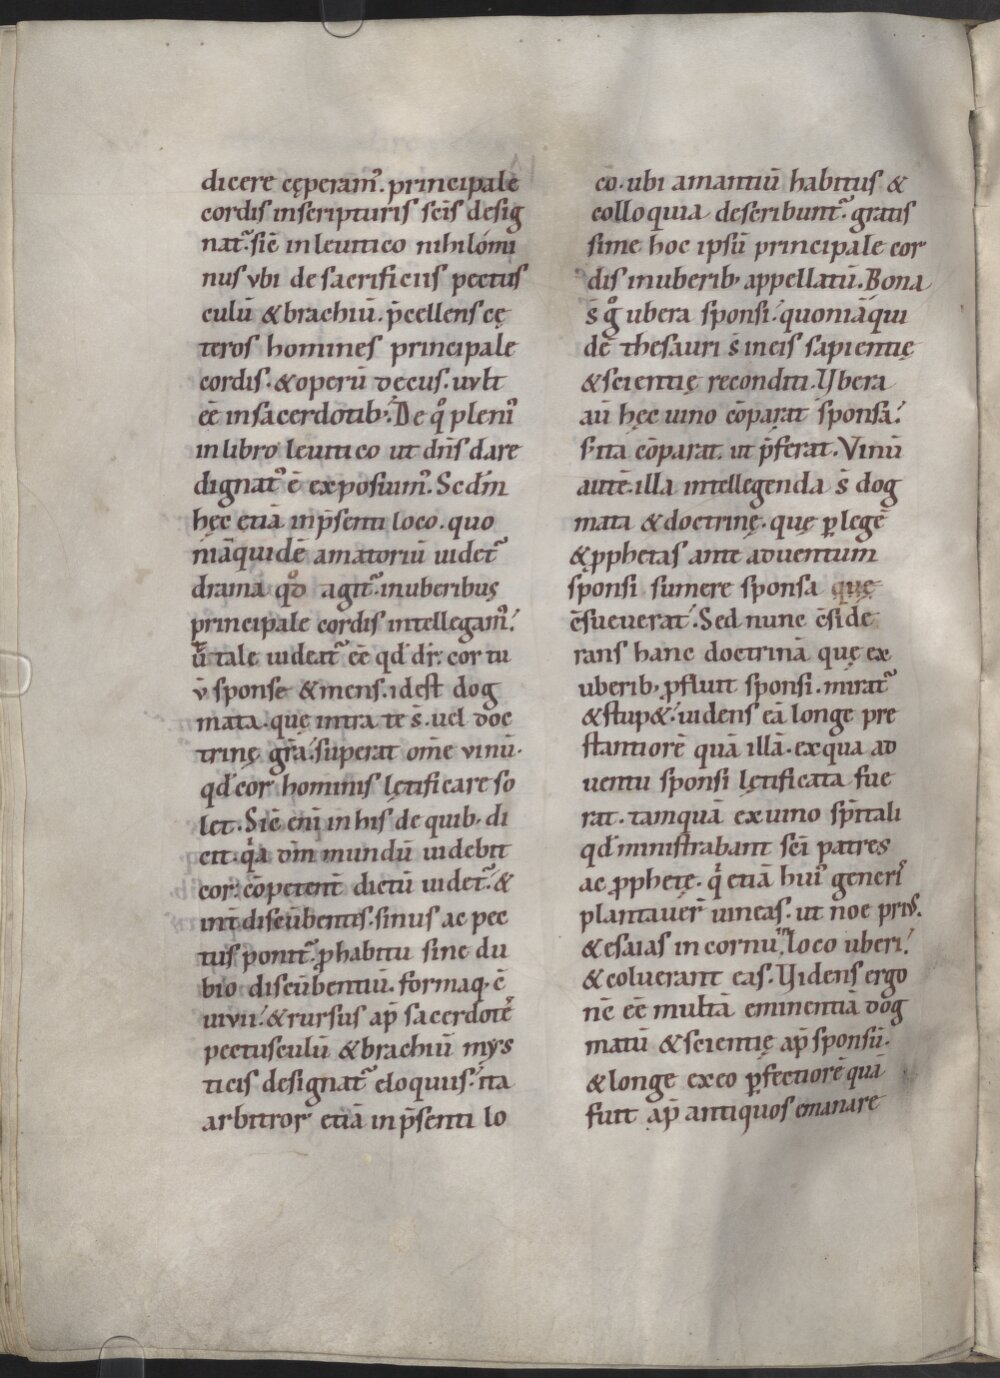 dicere cęperam᷒. principale
cordis inscripturis scīs desig
nat᷑. sic̄ inleuitico nihilómi
nus vbi desacrificiis pectus
culū &brachiū. p̄cellens cę
teros homines principale
cordis. &operū decus. uult
eē insacerdotib;. De q̊ pleni᷒
inlibro leuitico ut dn̄s dare
dignat᷒ ē exposuim᷒. Scd̄m
hęc etiā inp̄senti loco. quo
niāquidē amatoriū uidet᷑
drama qd̊ agit᷑. inuberibus
principale cordis intellegam᷒.
ū̓ tale uideat᷑ eē qd̓ dr̄. cor tu
v̄ sponse &mens. idest dog
mata. quę intra te s̄. uel doc
trinę gr̄a. superat om̄e vinū.
qd̓ cor hominis lętificare so
let. Sic̄ eni᷑ inhis de quib; di
cit. qͥa dm̄ mundū uidebit
cor. cōpetent̄ dictū uidet᷑. &
int̄ discūbentis. sinus ac pec
tus ponit᷑. ꝓhabitu sine du
bio discūbentiū. formaq; c̄
uiuii. &rursus ap̄ sacerdotē
pectusculū &brachiū mys
ticis designat᷑ eloquiis. ita
arbitror etiā inp̄senti lo
cō. ubi amantiū habitus &
colloquia describunt᷑. gratis
sime hoc ipsū principale cor
dis inuberib; appellatū. Bona
s̄ g̊ ubera sponsi. quoniāqui
dē thesauri s̄ ineis sapientię
&scientię reconditi. Vbera
aū hęc uino cōparat sponsa.
s ita cōparat. ut p̄ferat. Vinū
autē. illa intellegenda s̄ dog
mata &doctrinę. quę ꝑlegē
&ꝓphetas ante aduentum
sponsi sumere sponsa quę
c̄sueuerat. Sed nunc c̄side
rans hanc doctrinā quę ex
uberib; ꝓfluit sponsi. mirat᷑
&stup&. uidens eā longe pre
stantiorē quā illā. exqua ad
uentu sponsi lętificata fue
rat. tamquā exuino spīrtali
qd̓ ministrabant sc̄i patres
ac ꝓphetę. qͥ etiā hui᷒ generis
plantauer̄ uineas. ut noe prim᷒.
&esaias in cornu, in loco uberi.
&coluerant eas. Videns ergo
nc̄ eē multā eminentiā dog
matū &scientię ap̄ sponsū.
&longe exeo ꝑfectiorē quā
fuit ap̄ antiquos emanare